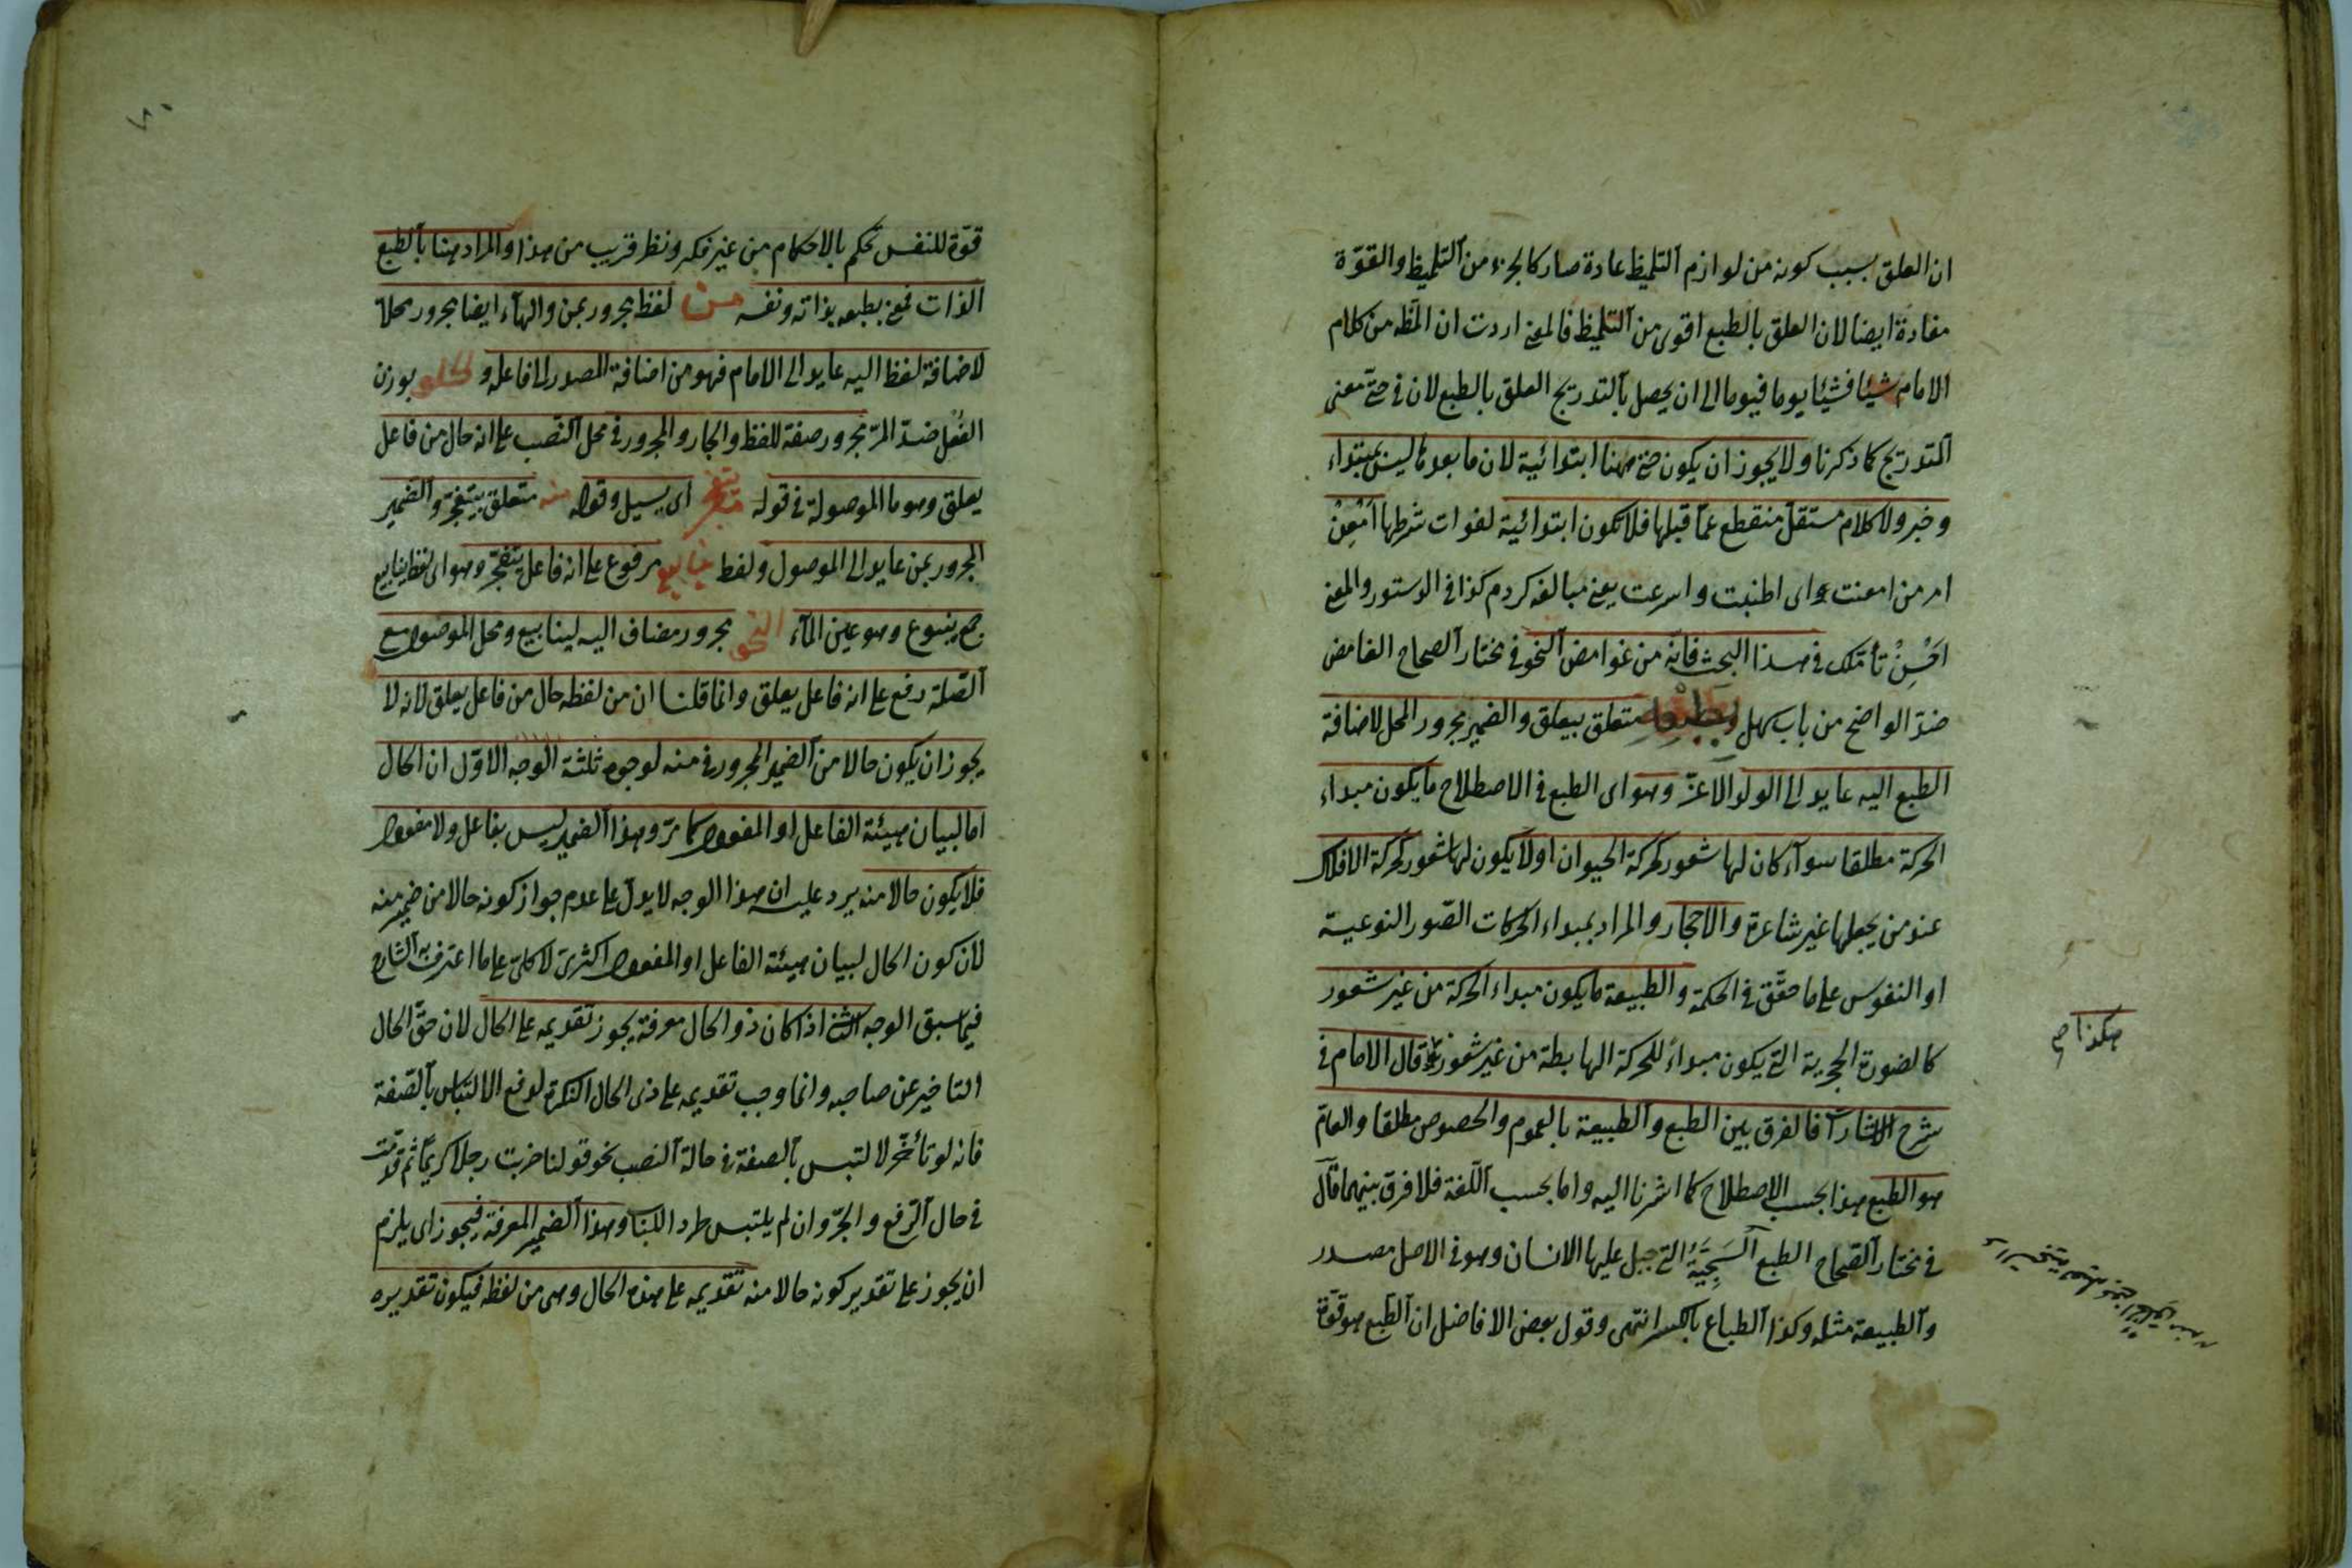 ان العلق بسبب كونه من لوازم التلميظ عادة صار كالجزء من التلميظ والقوة
مفادة ايضا لان العلق بالطبع اقوى من التلميظ فالمعنى اردت ان المظه من كلام
الامام شيئا فشيئا يوما فيوما الى ان يحصل بالتدريج العلق بالطبع لان في حتى معنى
التدريج كما ذكرنا ولا يجوز ان يكون حتى ههنا ابتدائية لان ما بعدها ليس بمبتداء
وخبر ولا كلام مستقل منقطع عما قبلها فلا تكون ابتدائية لفوات شرطها امعن
امر من امعنت اى اطنبت واسرعت يعنى مبالغه كردم كذا في الدستور والمعنى
احسن تأملك في هذا البحث فانه من غوامض النحو في مختار الصحاح الغامض
ضد الواضح من باب سهل بطبعه متعلق بيعلق والضمير مجرور المحل لاضافة
الطبع اليه عايد الى الولد الاعز وهو اى الطبع في الاصطلاح ما يكون مبداء
الحركة مطلقا سوآء كان لها شعور كحركة الحيوان اولا يكون لها شعور كحركة الافلاك
عند من يجعلها غير شاعرة والاحجار والمراد بمبداء الحركات الصور النوعية
او النفوس على ما حقق في الحكمة والطبيعة ما يكون مبداء الحركة من غير شعور
كالصورة الحجرية التى يكون مبداء للحركة الهابطة من غير شعور قال الامام في
هكذا صح
شرح الاشارات فالفرق بين الطبع والطبيعة بالعموم والخصوص مطلقا والعام
هو الطبع هذا بحسب الاصطلاح كما اشرنا اليه واما بحسب اللغة فلا فرق بينهما قال
في مختار الصحاح الطبع السجية التى جبل عليها الانسان وهو في الاصل مصدر
والطبيعة مثله وكذا الطباع بالكسر انتهى وقول بعض الافاضل ان الطبع هو قوة
قوة للنفس تحكم بالاحكام من غير فكر ونظر قريب من هذا والمراد هنا بالطبع
الذات فمعنى بطبعه بذاته ونفسه من لفظ مجرور بمن والهآء ايضا مجرور محلا
لاضافة لفظ اليه عايد الى الامام فهو من اضافة المصدر الى فاعله و الحلو بوزن
الفعل ضد المر مجرور صفة للفظ والجار والمجرور في محل النصب على انه حال من فاعل
يعلق وهو ما الموصولة في قوله يتفجر اى يسيل وقوله منه متعلق بيتفجر والضمير
المجرور بمن عايد الى الموصول ولفظ ينابيع مرفوع على انه فاعل يتفجر وهو اى لفظ ينابيع
جمع ينبوع وهو عين المآء النحو مجرور مضاف اليه لينابيع ومحل الموصول مع
الصلة رفع على انه فاعل يعلق وانما قلنا ان من لفظه حال من فاعل يعلق لانه لا
يجوز ان يكون حالا من الضمير المجرور في منه لوجوه ثلثة الوجه الاول ان الحال
اما لبيان هيئة الفاعل او المفعول كما مر وهذا الضمير ليس بفاعل ولا مفعول
فلا يكون حالا منه يرد عليه ان هذا الوجه لا يدل على عدم جواز كونه حالا من ضمير منه
لان كون الحال لبيان هيئة الفاعل او المفعول اكثرى لا كلى على ما اعترف به الشارح
فيما سبق الوجه الثانى اذا كان ذو الحال معرفة يجوز تقديمه على الحال لان حق الحال
التاخير عن صاحبه وانما وجب تقديمه على ذى الحال النكرة لدفع الالتباس بالصفة
فانه لو تأخر لالتبس بالصفة في حالة النصب نحو قولنا ضربت رجلا كريما ثم قدمت
في حال الرفع والجر وان لم يلتبس طردا للباب وهذا الضمير المعرفة فيجوز اى يلزم
ان يجوز على تقدير كونه حالا منه تقديمه على هذه الحال وهى من لفظه فيكون تقديره